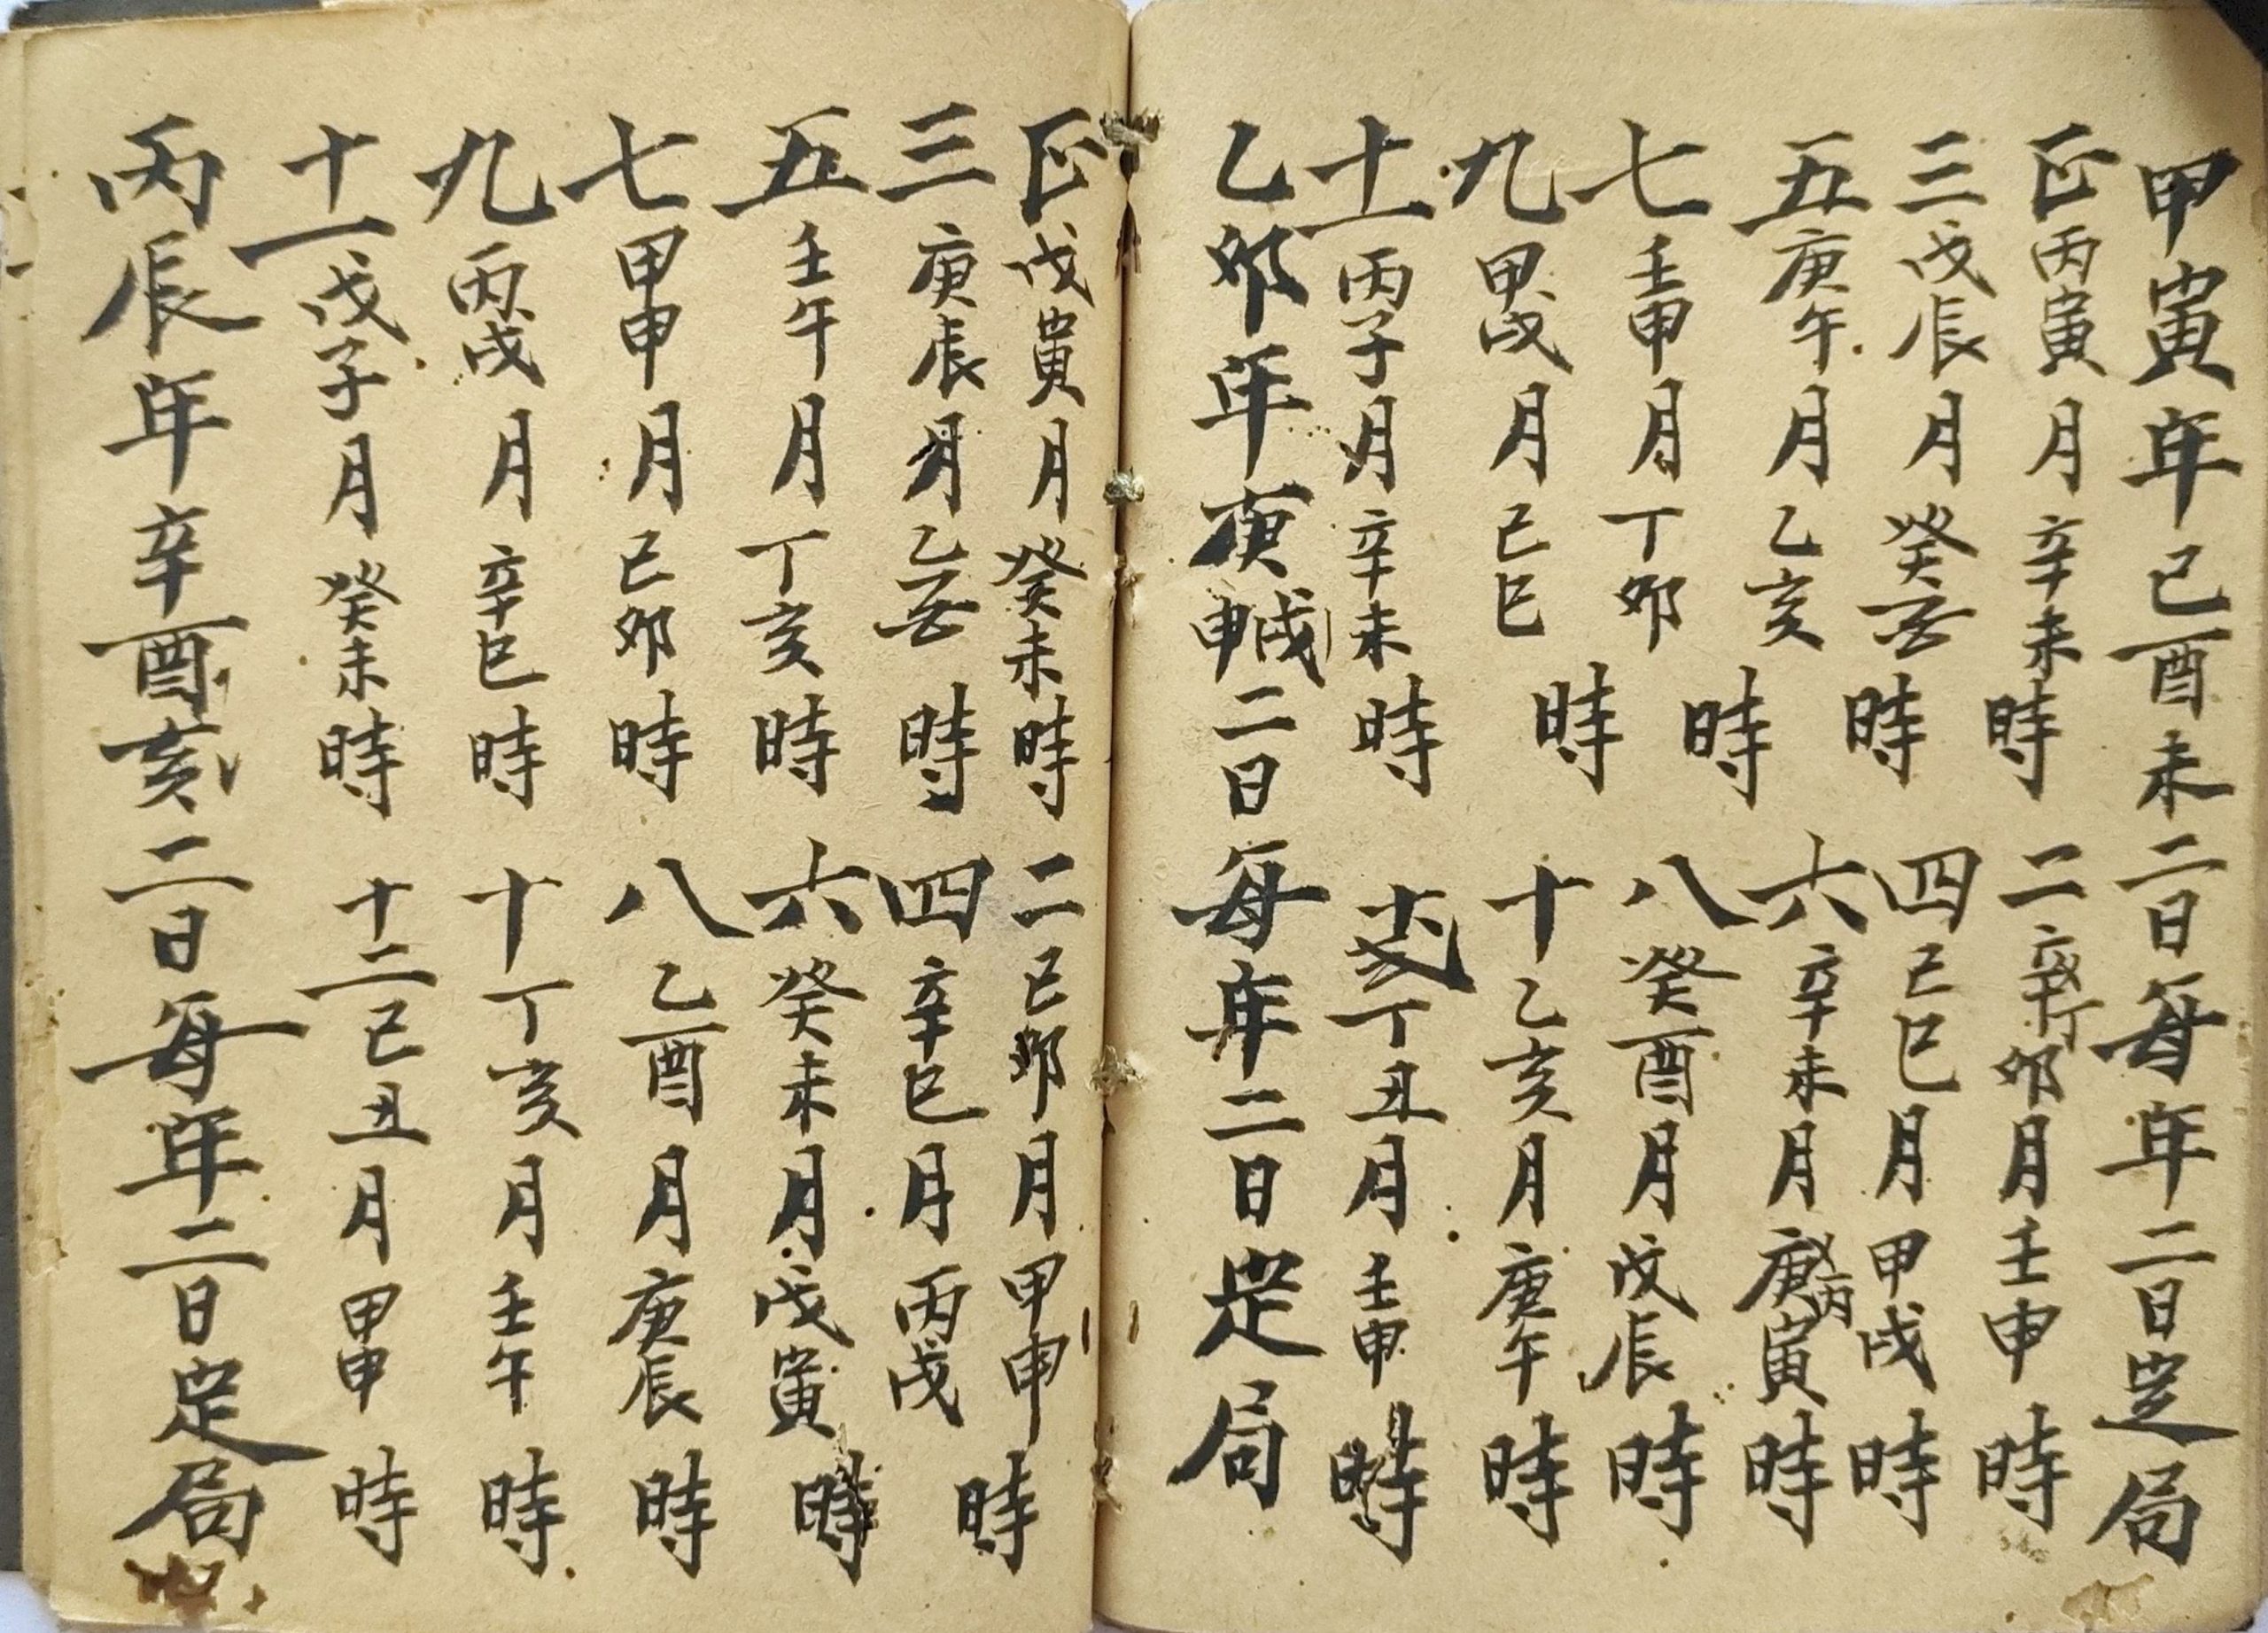 甲寅年己酉未二日每年二日定局
正丙寅月辛未時 二丁卯月壬申時
三戊辰月癸時 四己巳月甲戌時
五庚午月乙亥時 六辛未月丙寅時
七壬申月丁卯時 八癸酉月戊辰時
九甲戌月己巳時 十乙亥月庚午時
十一丙子月辛未時 丁丑月壬申時
乙卯年庚申戌二日每年二日定局
正戊寅月癸未時 二己卯月甲申時
三庚辰月乙時 四辛巳月丙戌
五壬午月丁亥時 六癸未月戊寅時
七甲申月己卯時 八乙酉月庚辰時
九丙戌月辛巳時 十丁亥月壬午時
十一戊子月癸未時 十二己丑月甲申時
丙辰年辛酉亥二日每年二日定局